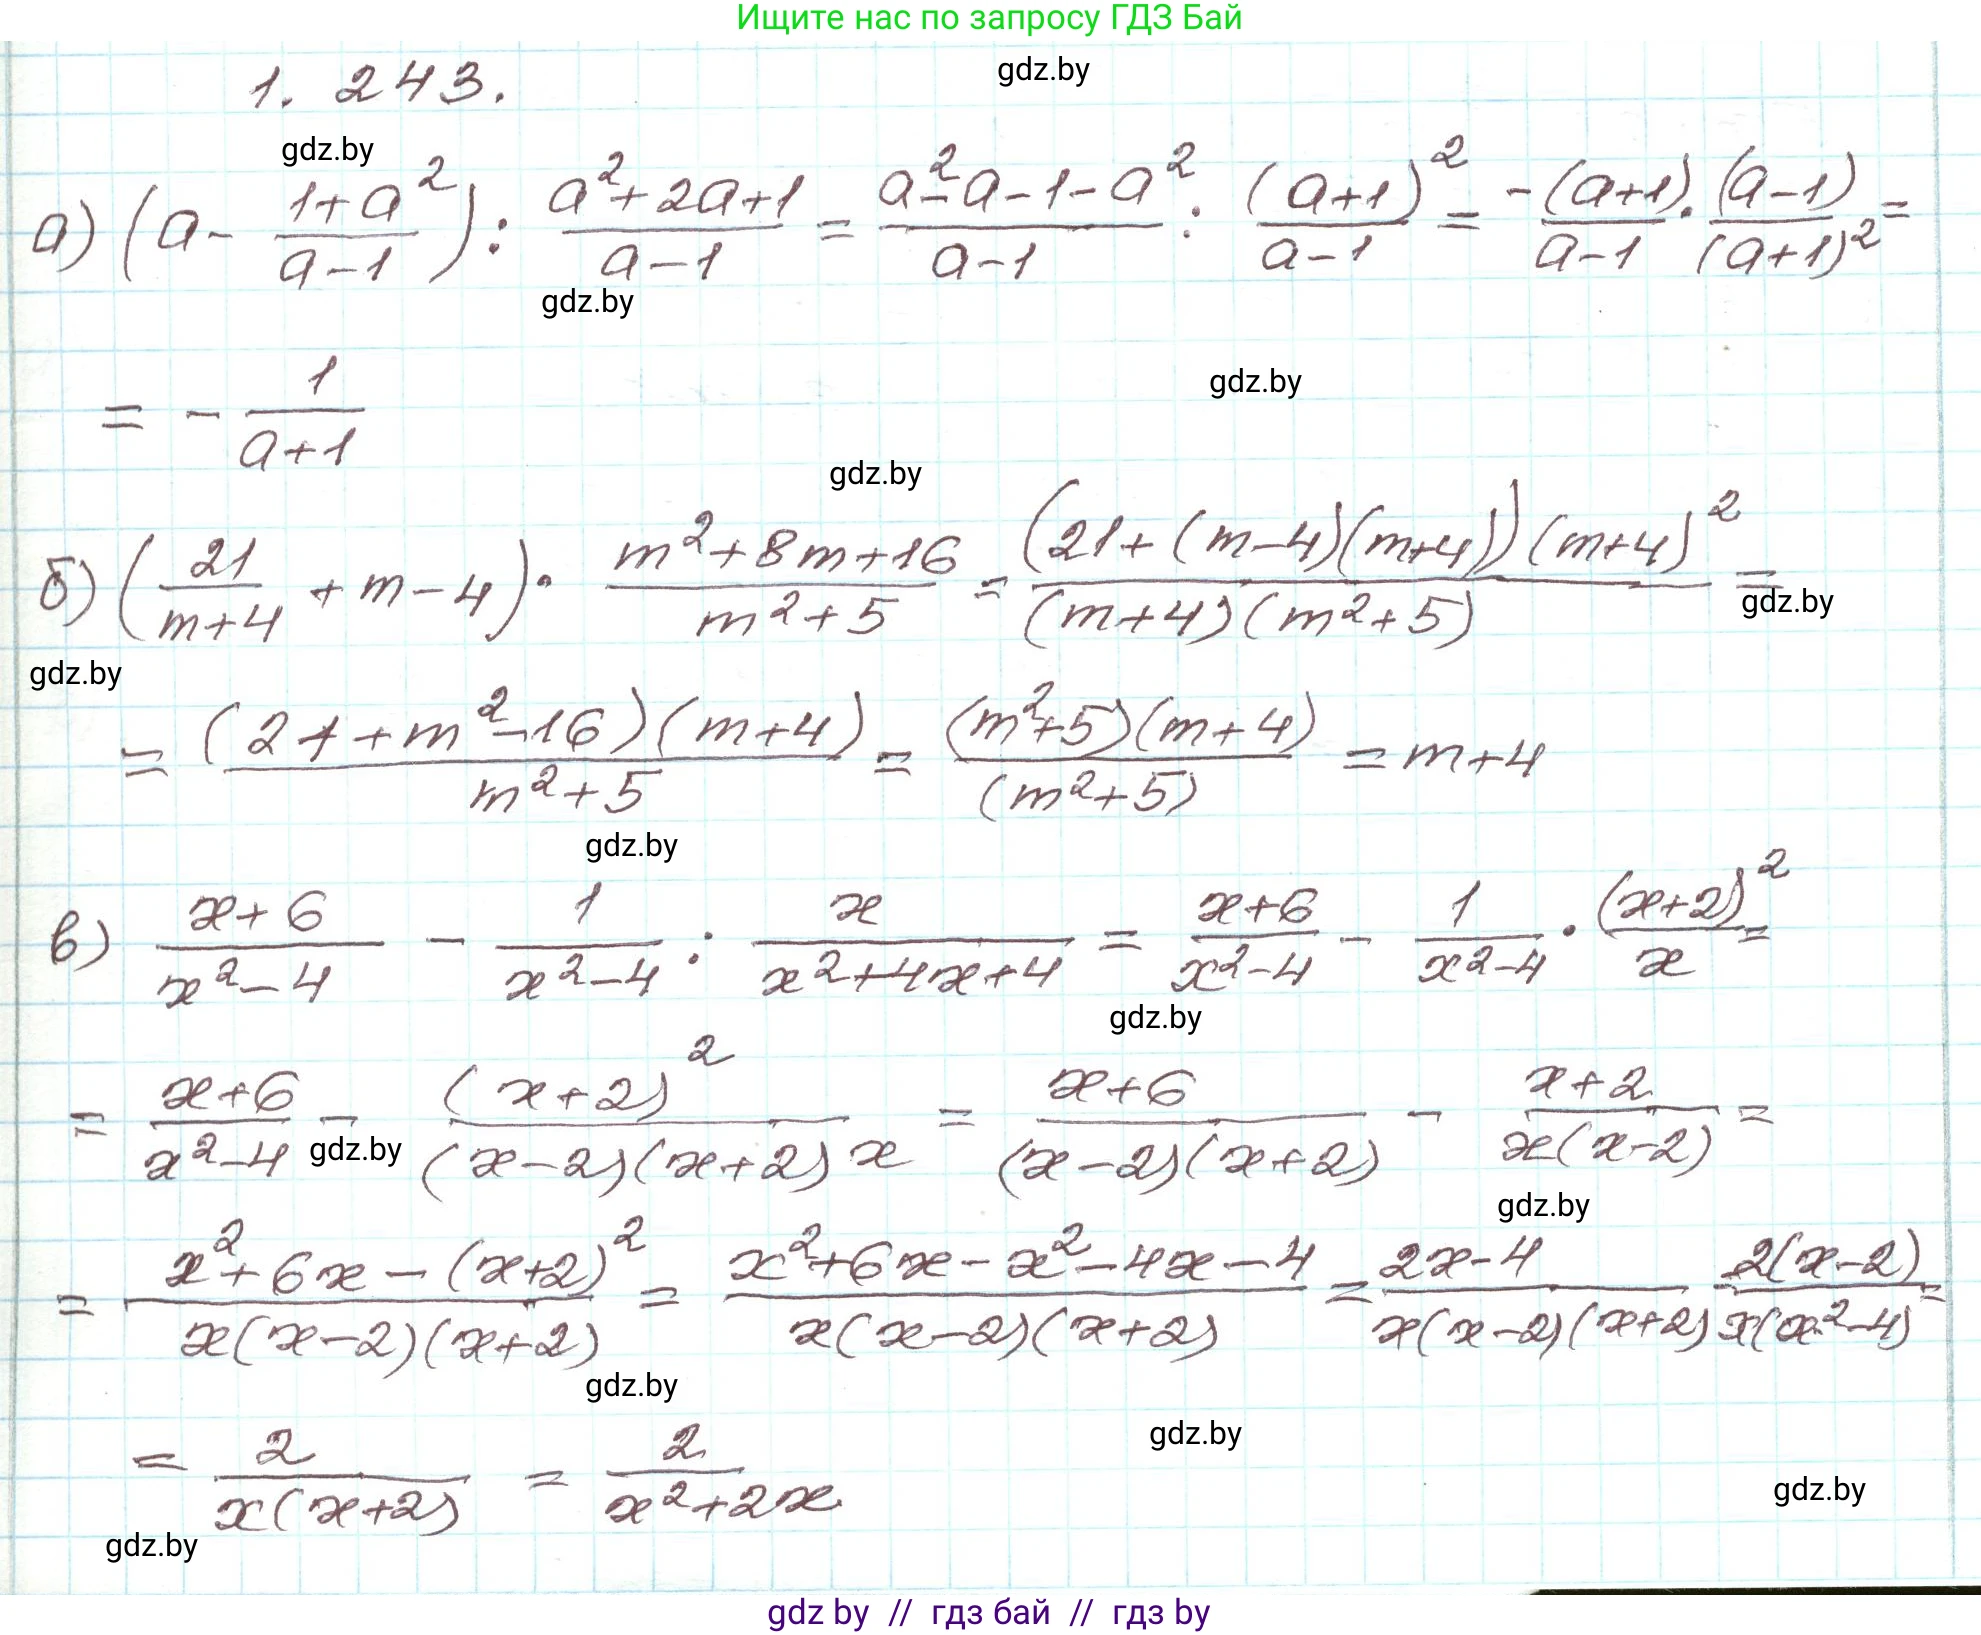 Ищите нас по запросу ГДЗ Бай
1. 243.
gdz.by
gdz.by
а) (a - (1+a²)/(a-1)) : (a²+2a+1)/(a-1) = (a²-a-1-a²)/(a-1) : (a+1)²/(a-1) = -(a+1)/(a-1) · (a-1)/(a+1)² =
gdz.by
= - 1/(a+1)
gdz.by
gdz.by
б) (21/(m+4) + m - 4) · (m²+8m+16)/(m²+5) = ((21+(m-4)(m+4))(m+4)²)/((m+4)(m²+5)) =
gdz.by
gdz.by
= ((21+m²-16)(m+4))/(m²+5) = ((m²+5)(m+4))/(m²+5) = m+4
gdz.by
в) (x+6)/(x²-4) - 1/(x²-4) : x/(x²+4x+4) = (x+6)/(x²-4) - 1/(x²-4) · (x+2)²/x =
gdz.by
= (x+6)/(x²-4) - (x+2)²/((x-2)(x+2)x) = (x+6)/((x-2)(x+2)) - (x+2)/(x(x-2)) =
gdz.by
gdz.by
= (x²+6x-(x+2)²)/(x(x-2)(x+2)) = (x²+6x-x²-4x-4)/(x(x-2)(x+2)) = (2x-4)/(x(x-2)(x+2)) 2(x-2)/(x(x²-4)) =
gdz.by
gdz.by
= 2/(x(x+2)) = 2/(x²+2x)
gdz.by
gdz.by
gdz by // гдз бай // гдз by